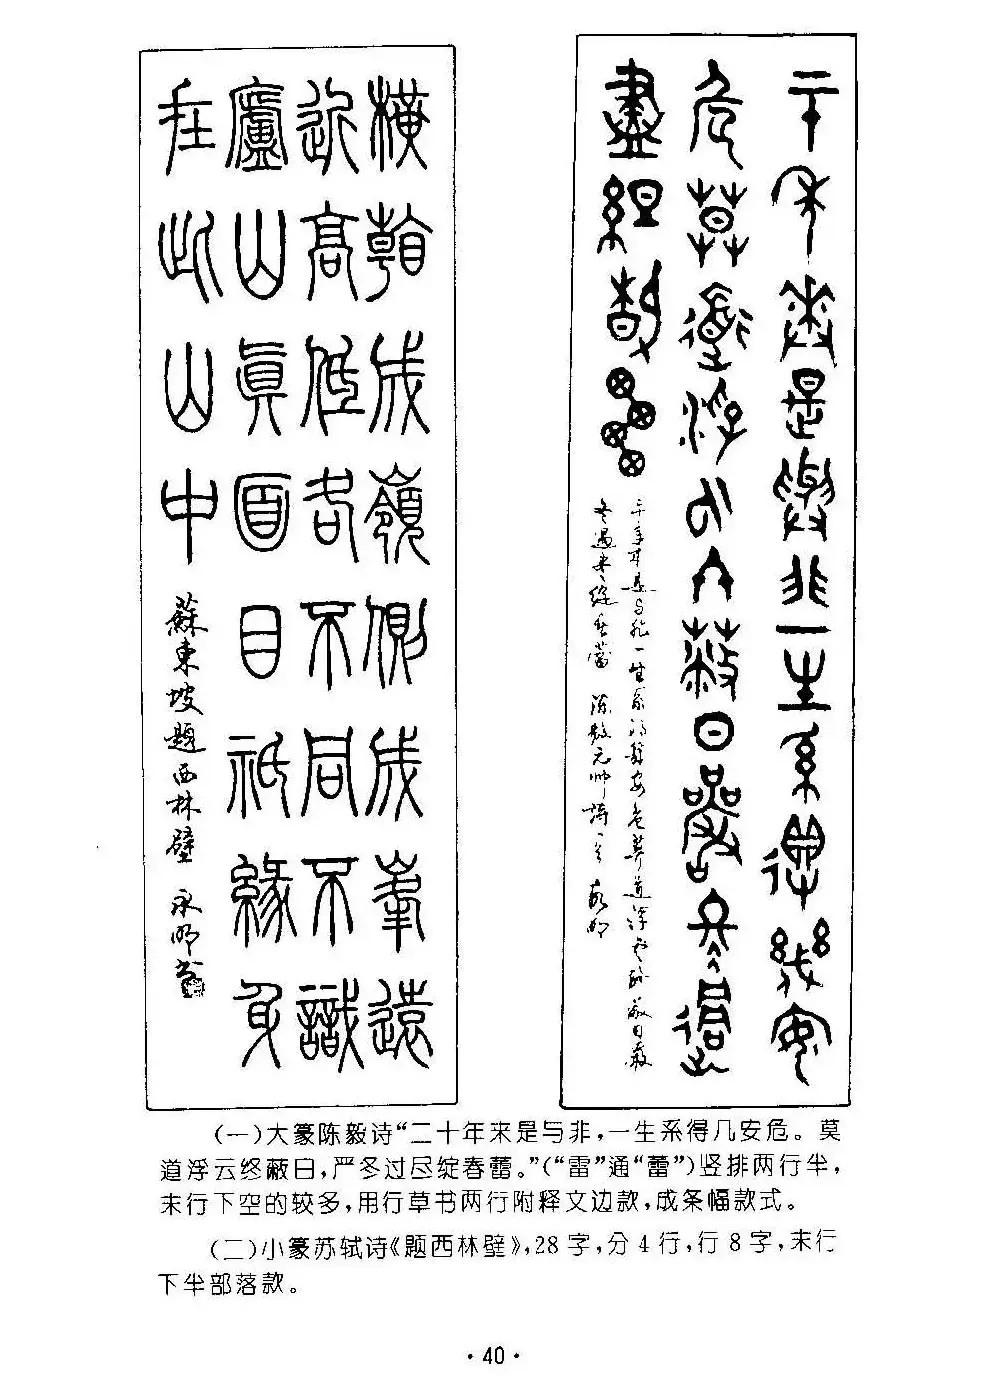 二十年來是與非一生系得幾安
危莫道浮云終蔽日嚴冬過
盡綻春雷
二十年來是与非一生系得幾安危莫道浮雲終蔽日嚴
冬過盡綻春蕾 陳毅元帥詩一首 永明
橫看成嶺側成峯遠
近高低各不同不識
廬山眞面目祇緣身
在此山中
蘇東坡題西林壁 永明書
(一)大篆陈毅诗“二十年来是与非,一生系得几安危。莫
道浮云终蔽日,严冬过尽绽春蕾。”(“雷”通“蕾”)竖排两行半,
末行下空的较多,用行草书两行附释文边款,成条幅款式。
(二)小篆苏轼诗《题西林壁》,28字,分4行,行8字,末行
下半部落款。
·40·